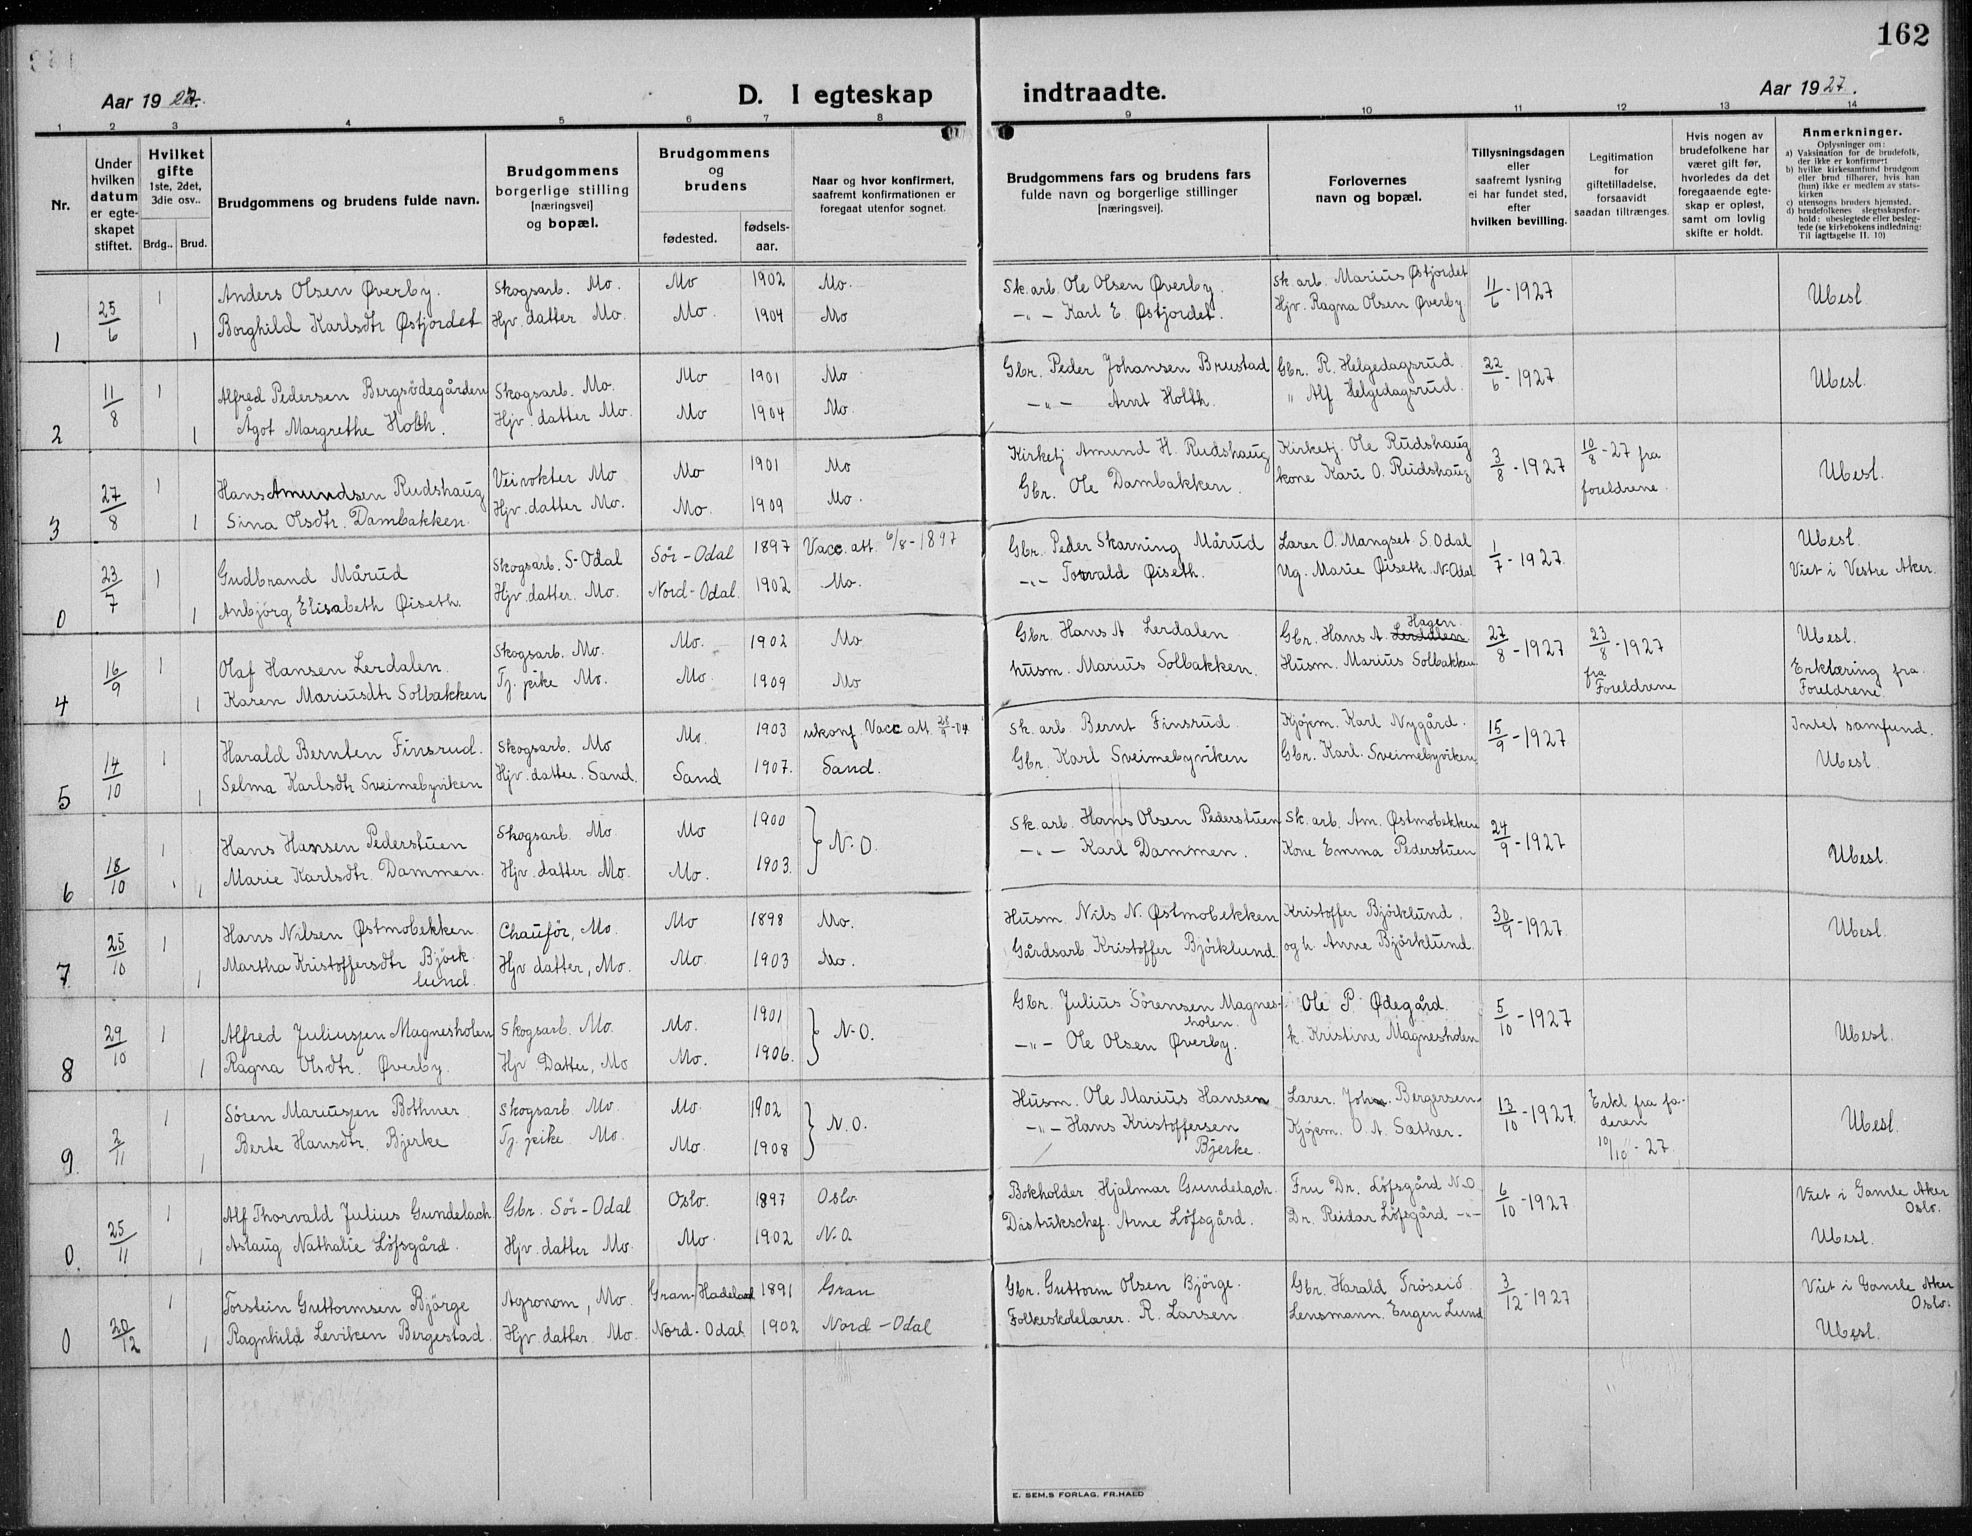 162
Aar 1927.
D. I egteskap
indtraadte.
Aar 1927.
1 2 3 4 5 6 7 8 9 10 11 12 13 14
Nr.
Under hvilken datum er egteskapet stiftet.
Hvilket gifte
1ste, 2det, 3die osv..
Brdg.. Brud.
Brudgommens og brudens fulde navn.
Brudgommens borgerlige stilling [næringsvei] og bopæl.
Brudgommens og brudens
fødested.
fødsels-aar.
Naar og hvor konfirmert, saafremt konfirmationen er foregaat utenfor sognet.
Brudgommens fars og brudens fars fulde navn og borgerlige stillinger [næringsvei].
Forlovernes navn og bopæl.
Tillysningsdagen eller saafremt lysning ei har fundet sted, efter hvilken bevilling.
Legitimation for giftetilladelse, forsaavidt saadan tiltrænges.
Hvis nogen av brudefolkene har været gift før, hvorledes da det foregaaende egteskap er opløst, samt om lovlig skifte er holdt.
Anmerkninger.
Oplysninger om:
a) Vaksination for de brudefolk, der ikke er konfirmert
b) hvilke kirkesamfund brudgom eller brud tilhører, hvis han (hun) ikke er medlem av statskirken
c) utensogns bruders hjemsted.
d) brudefolkenes slegtsskapsforhold: ubeslegtede eller beslegtede (se kirkebokens indledning: Til iagttagelse II. 10)
1 25/6 1 Anders Olsen Øverby. Skogsarb. Mo. Mo 1902 Mo. Sk. arb. Ole Olsen Øverby. Sk. arb. Marius Østjordet 11/6 - 1927 Ubesl.
1 Borghild Karlsdtr Østjordet Hjv. datter Mo. Mo. 1904 Mo -"- Karl E. Østjordet. Hjv. Ragna Olsen Øverby
2 11/8 1 Alfred Pedersen Bergsödegården Skogsarb. Mo. Mo 1901 Mo Gbr. Peder Johansen Brustad Gbr. R. Helgedagsrud 22/6 - 1927 Ubesl.
1 Ågot Margrethe Holth. Hjv. datter Mo. Mo 1904 Mo. -"- Arnt Holth. " Alf Helgedagsrud.
3 27/8 1 Hans Amundsen Rudshaug Veivokter Mo Mo 1901 Mo Kirketj. Amund H. Rudshaug Kirketj. Ole Rudshaug 3/8 - 1927 10/8 - 27 fra foreldrene. Ubesl.
1 Sina Olsdtr. Dambakken. Hjv. datter Mo. Mo. 1909 Mo. Gbr. Ole Dambakken. kone Kari O. Rudshaug
0 23/7 1 Gudbrand Mårud Skogsarb. S-Odal Sör-Odal 1897 Vacc. att. 6/8 - 1897 Gbr. Peder Skarning Mårud Lærer O. Mangset. S. Odal 1/7 - 1927. Ubesl.
1 Anbjörg Elisabeth Øiseth. Hjv. datter. Mo. Nord-Odal. 1902 Mo. -"- Torvald Øiseth. Ug. Marie Øiseth N-Odal Viet i Vestre Aker.
4 16/9 1 Olaf Hansen Lerdalen. Skogsarb. Mo. Mo. 1902 Mo Gbr. Hans A Lerdalen Gbr. Hans A. Hagen. 27/8 - 1927 23/8 - 1927 fra Foreldrene Ubesl.
1 Karen Mariusdtr Solbakken Tj. pike Mo. Mo. 1909 Mo husm. Marius Solbakken. Husm. Marius Solbakken Erklæring fra Foreldrene.
5 14/10 1 Harald Bernten Finsrud. Skogsarb. Mo Mo. 1903 ukonf. Vacc att. Sk. arb Bernt Finsrud. Kjøjem. Karl Nygård. 15/9 - 1927 Intet samfund.
1 Selma Karlsdtr Sveimebyviken Hjv. datter. Sand. Sand 1907. Sand. Gbr. Karl Sveimebyviken Gbr. Karl. Sveimebyviken Ubesl.
6 18/10 1 Hans Hansen Pederstuen Skogsarb. Mo. Mo 1900 N-O. Sk. arb. Hans Olsen Pederstuen Sk. arb. Am. Østmobekken 24/9 - 1927 Ubesl.
1 Marie Karlsdtr. Dammen. Hjv. datter Mo. Mo. 1903. -"- Karl Dammen. Kone Emma Pederstuen
7 25/10 1 Hans Nilsen Østmobekken. Chauför, Mo. Mo 1898 Mo. Husm. Nils N. Østmobekken Kristoffer Björklund. 30/9 - 1927. Ubesl.
1 Martha Kristoffersdtr Björklund. Hjv datter, Mo. Mo. 1903 Mo. Gårdsarb. Kristoffer Björklund. og h. Anne Björklund.
8 29/10 1 Alfred Juliusjen Magnesholen Skogsarb. Mo. Mo. 1901 N-O. Gbr. Julius Sörensen Magnesholen. Ole P. Ødegård. 5/10 - 1927 Ubesl.
1 Ragna Olsdtr. Øverby. Hjv Datter, Mo Mo. 1906. -"- Ole Olsen Øverby. k. Kristine Magnesholen
9. 2/11 1 Sören Mariusjen Bothner. Skogsarb. Mo. Mo. 1902 N.O. Husm. Ole Marius Hansen Lærer. Johan. Bergersen. 13/10 - 1927. Erkl fra faderen 10/10 - 27. Ubesl.
1 Berte Hansdtr. Bjerke Tj. pike. Mo. Mo. 1908 -"- Hans Kristoffersen Bjerke. Kjøjem. O. A. Sæther.
0. 25/11 1 Alf Thorvald Julius Gundelach. Gbr. Sör-Odal Oslo. 1897 Oslo. Bokholder Hjalmar Gundelach. Fru Dr. Löfsgård N.O 6/10 - 1927 Viet i Gamle Aker Oslo.
1 Aslaug Nathalie Löfsgård. Hjv. datter Mo. Mo. 1902 N.O. Distrikschef. Arne Löfsgård. Dr. Reidar Löfsgård -"- Ubesl.
0 20/12 1 Torstein Guttormsen Björge Agronom, Mo. Gran-Hadeland 1891 Gran Gbr. Guttorm Olsen Björge. Gbr. Harald Tröseid 3/12 - 1927 Viet i Gamle Aker Oslo.
1 Ragnhild Leviken Bergestad. Hjv. datter Mo. Nord-Odal. 1902 Nord-Odal Folkeskolelærer. R. Larsen. Lensmann. Eugen Lund. Ubesl.
E. SEM.S FORLAG. FR.HALD